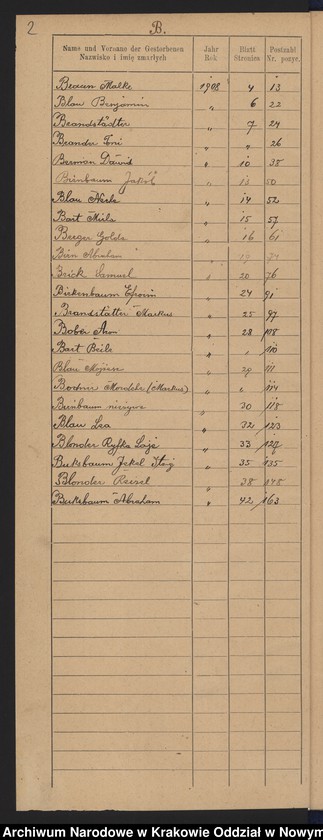 2
B.
Name und Vorname der Gestorbenen Jahr Blatt Postzahl
Nazwisko i imię zmarłych Rok Stronica Nr. pozyc.
Malke 1908 4 13
Blau Benjamin " 6 22
Brandstädter " 7 24
Brander " " 26
Berman Dawid " 10 38
Birnbaum Jakób " 13 50
Blau " 14 52
Bart " 15 57
Berger Golda " 16 61
Birn Abraham 19 74
Brick Samuel " 20 76
Birkenbaum Efroim " 24 91
Brandstätter Markus " 25 97
Bober " 28 108
Bart Beile " " 110
Blau Mojżesz " 29 111
Mordche (Markus) " " 114
Birnbaum nieżywe " 30 118
Blau Lea " 32 123
Blonder Ryfka " 33 127
Buksbaum " 35 135
Blonder Reisel " 38 148
Buksbaum Abraham " 42 163
Archiwum Narodowe w Krakowie Oddział w Nowym